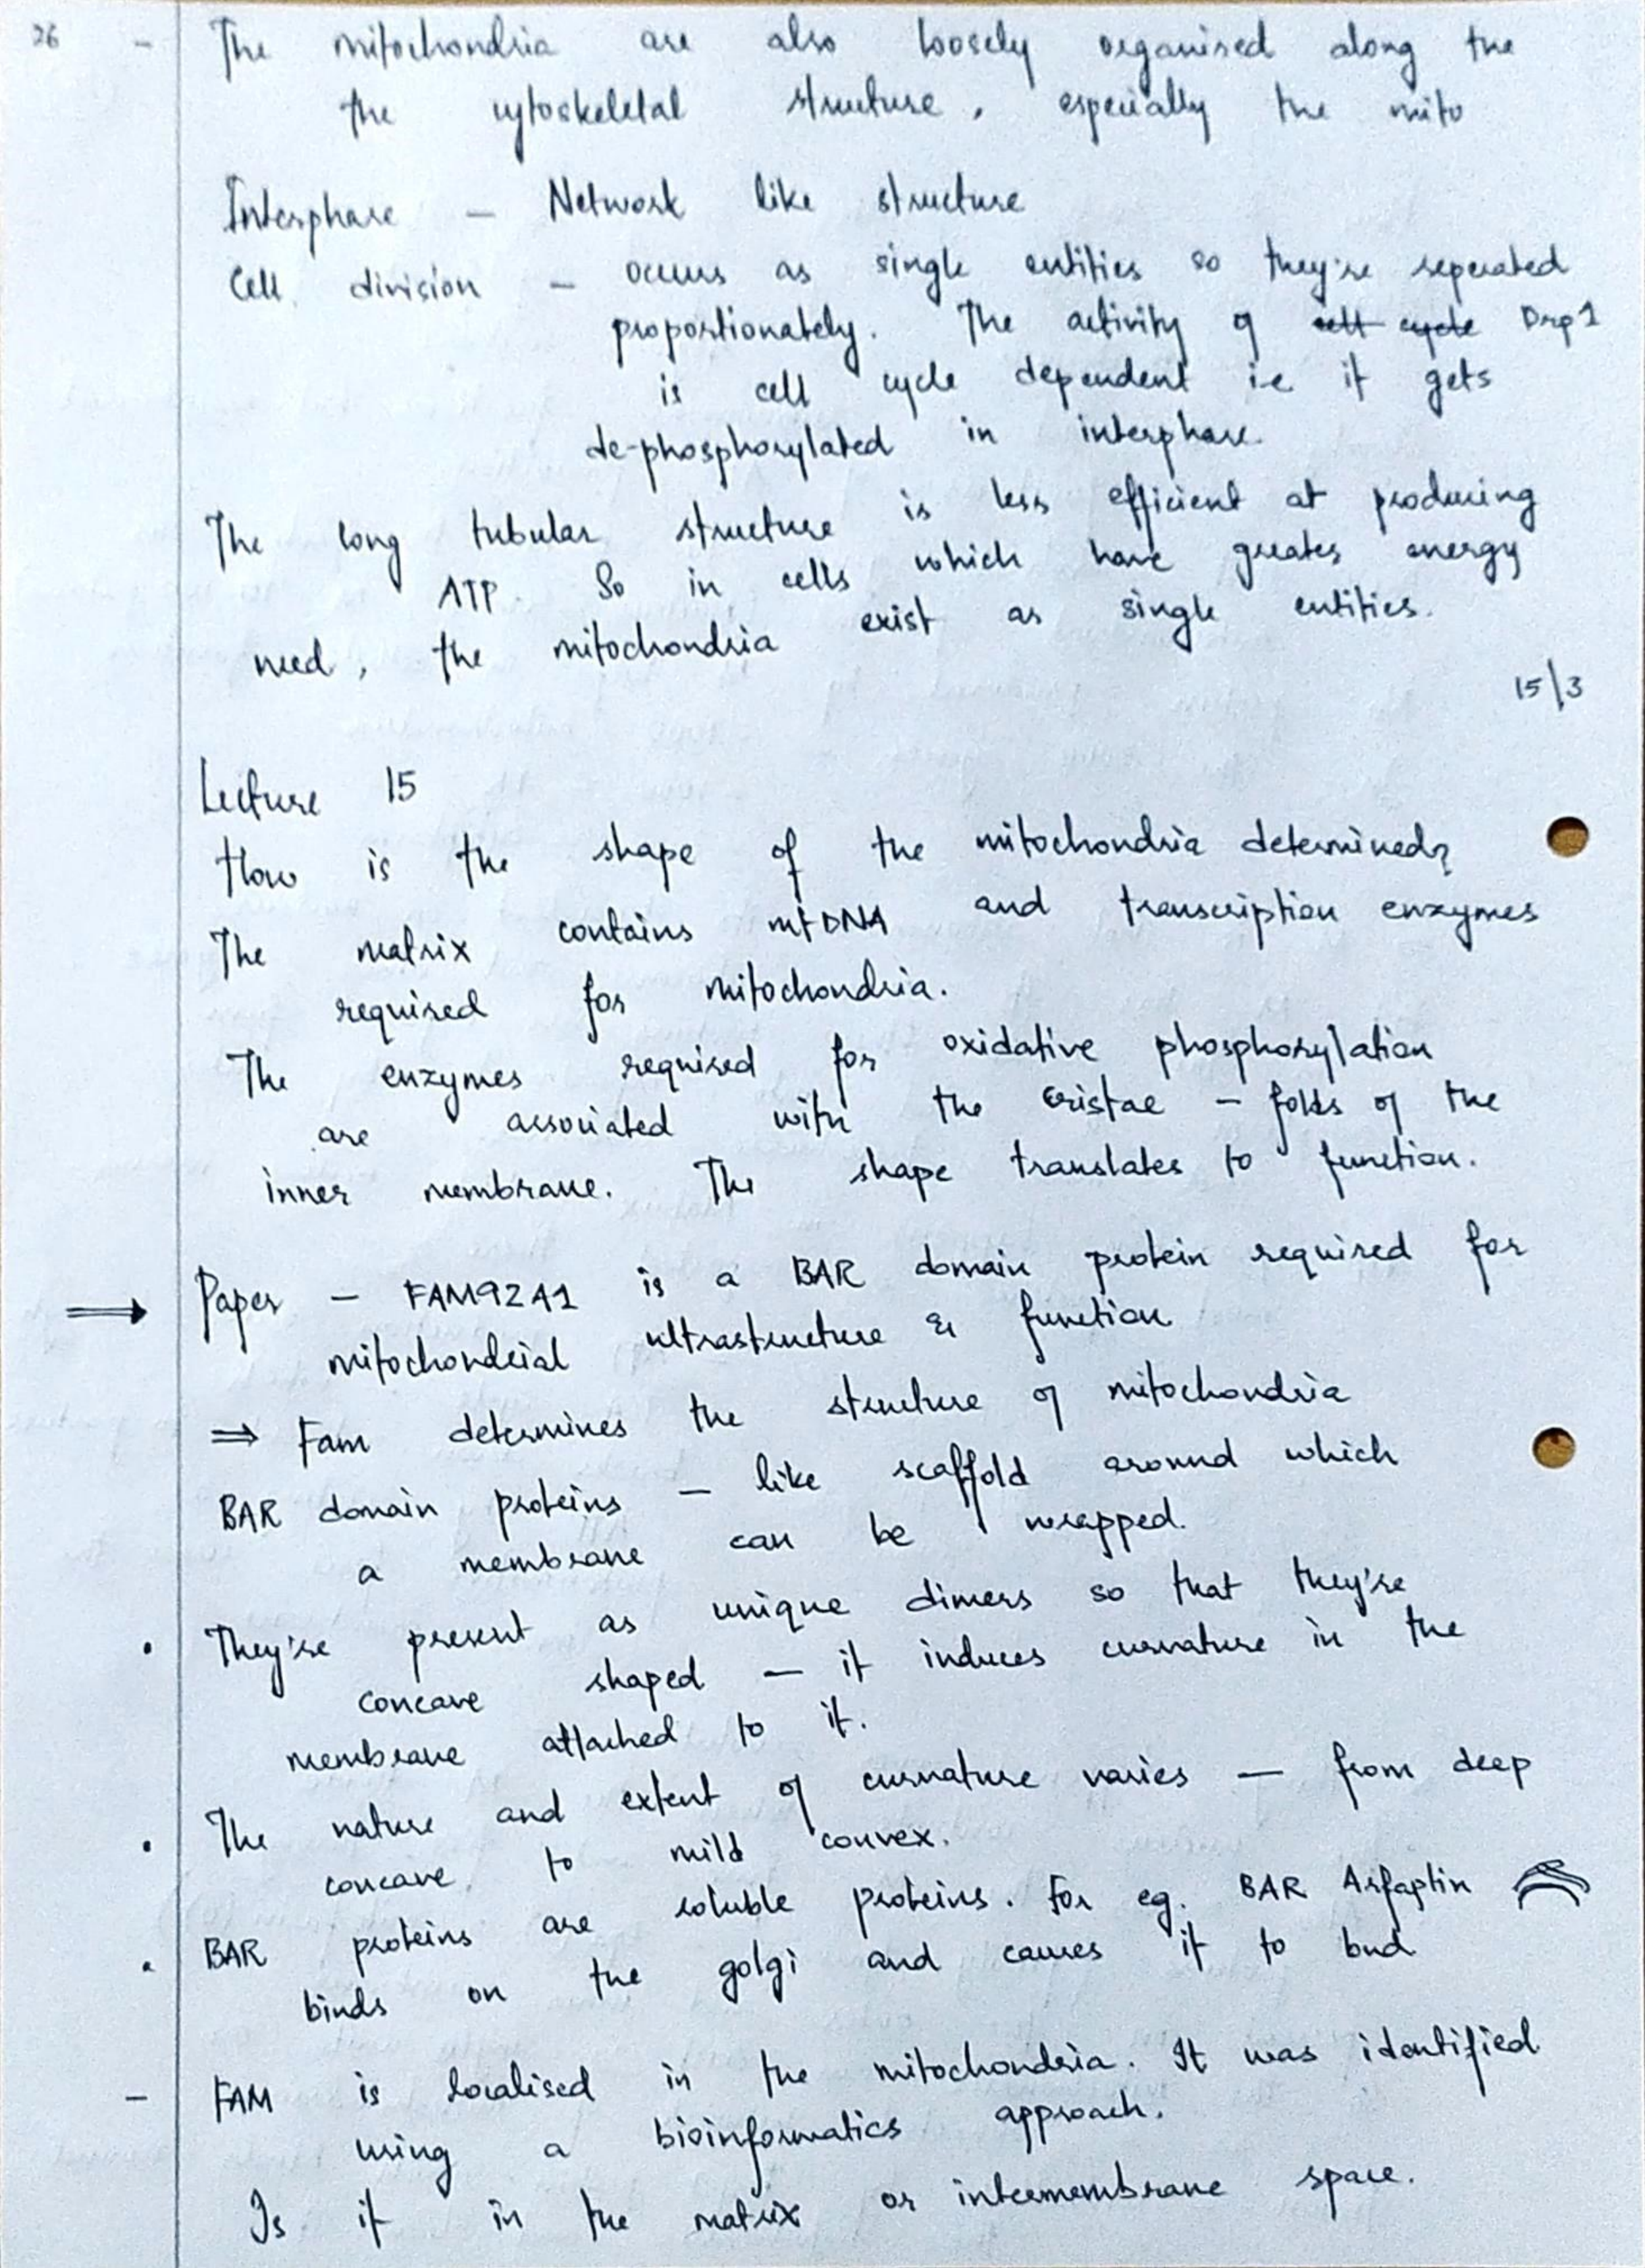 26 - The mitochondria are also loosely organised along the
the cytoskeletal structure, especially the mito
Interphase - Network like structure
Cell division - occurs as single entities so they're seperated
proportionately. The activity of cell cycle Drp1
is cell cycle dependent i.e it gets
de-phosphorylated in interphase.
The long tubular structure is less efficient at producing
ATP. So in cells which have greater energy
need, the mitochondria exist as single entities.
15/3
Lecture 15
How is the shape of the mitochondria determined?
The matrix contains mtDNA and transcription enzymes
required for mitochondria.
The enzymes required for oxidative phosphorylation
are associated with the cristae - folds of the
inner membrane. The shape translates to function.
⟹ Paper - FAM92A1 is a BAR domain protein required for
mitochondrial ultrastructure & function
⇒ Fam determines the structure of mitochondria
BAR domain proteins - like scaffold around which
a membrane can be wrapped.
• They're present as unique dimers so that they're
concave shaped - it induces curvature in the
membrane attached to it.
• The nature and extent of curvature varies - from deep
concave to mild convex.
• BAR proteins are soluble proteins. For eg. BAR Arfaptin
binds on the golgi and causes it to bud
- FAM is localised in the mitochondria. It was identified
using a bioinformatics approach.
Is it in the matrix or intermembrane space.